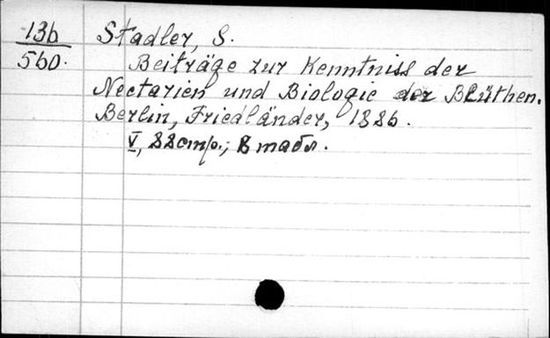 136
560.
Stadler, S.
Beiträge zur Kenntniss der
Nectarien und Biologie der Blüthen.
Berlin, Friedländer, 1886.
V, 88 стр.; 8 табл.